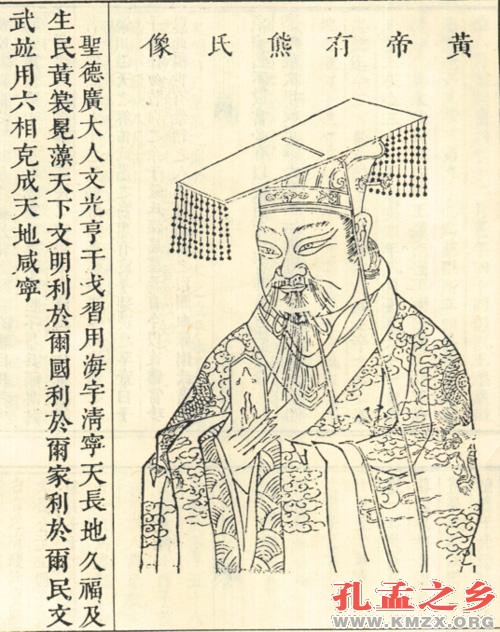 黃帝有熊氏像
聖德廣大人文光亨干戈習用海宇清寧天長地久福及
生民黃裳冕藻天下文明利於爾國利於爾家利於爾民文
武並用六相克成天地咸寧
孔孟之乡
WWW.KMZX.ORG